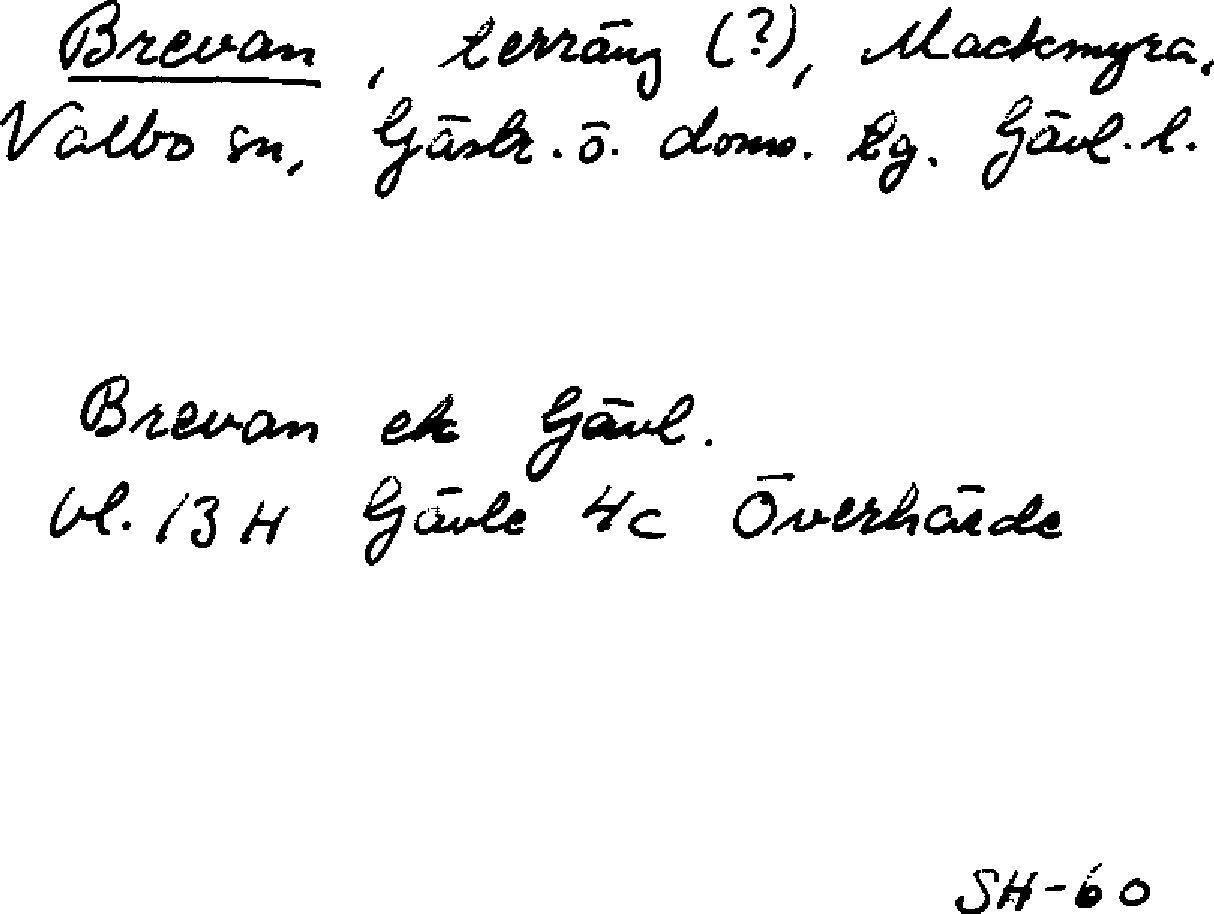 Brevan, terräng (?), Mackmyra,
Valbo sn, Gästr. ö. doms. tg. Gävl. l.
Brevan ek Gävl.
bl. 13 H Gävle 4c Överhärde
SH-60